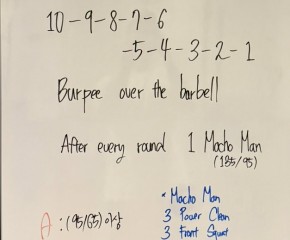 10-9-8-7-6
-5-4-3-2-1
Burpee over the barbell
After every round 1 Macho Man
(135/95)
* Macho Man
3 Power Clean
A : (95/65)이상
3 Front Squat